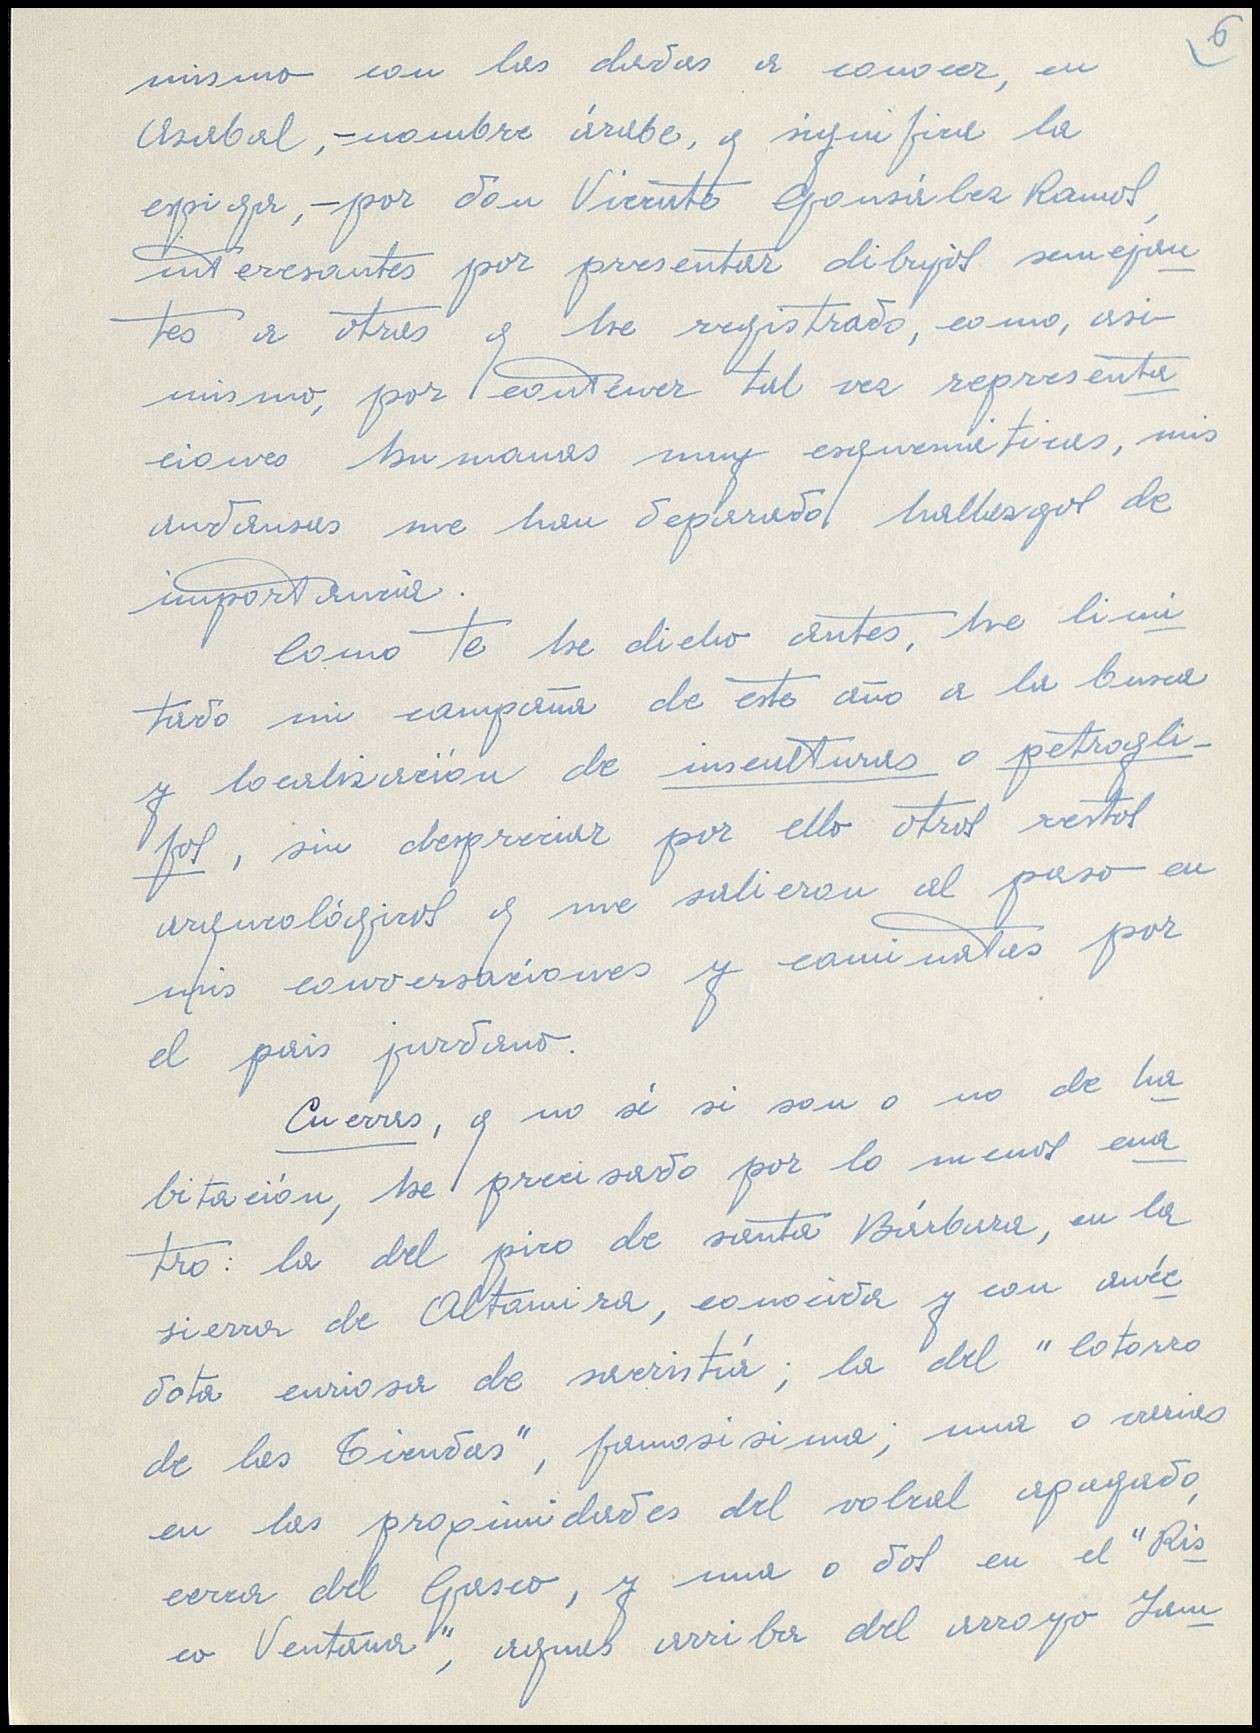 6
mismo con las dadas a conocer, en
Asabal, -nombre árabe, q significa la
espiga, -por don Vicente Gonsálbez Ramos,
interesantes por presentar dibujos semejan
tes a otras q he registrado, como, asi-
mismo, por contener tal vez representa
ciones humanas muy esquemáticas, mis
andansas me han deparado hallazgos de
importancia.
Como te he dicho antes, he limi
tado mi campaña de este año a la busca
y localización de insculturas o petrogli-
fos, sin despreciar por ello otros restos
arqueológicos q me salieron al paso en
mis conversaciones y caminatas por
el pais jurdano.
Cuevas, q no sé si son o no de ha
bitación, he precisado por lo menos cua
tro: la del pico de santa Bárbara, en la
sierra de Altamira, conocida y con anéc
dota curiosa de sacristía; la del "Cotorro
de las Tiendas", famosisima; una o varias
en las proximidades del volcal apagado,
cerca del Gasco, y una o dos en el "Ris
co Ventana", aguas arriba del arroyo